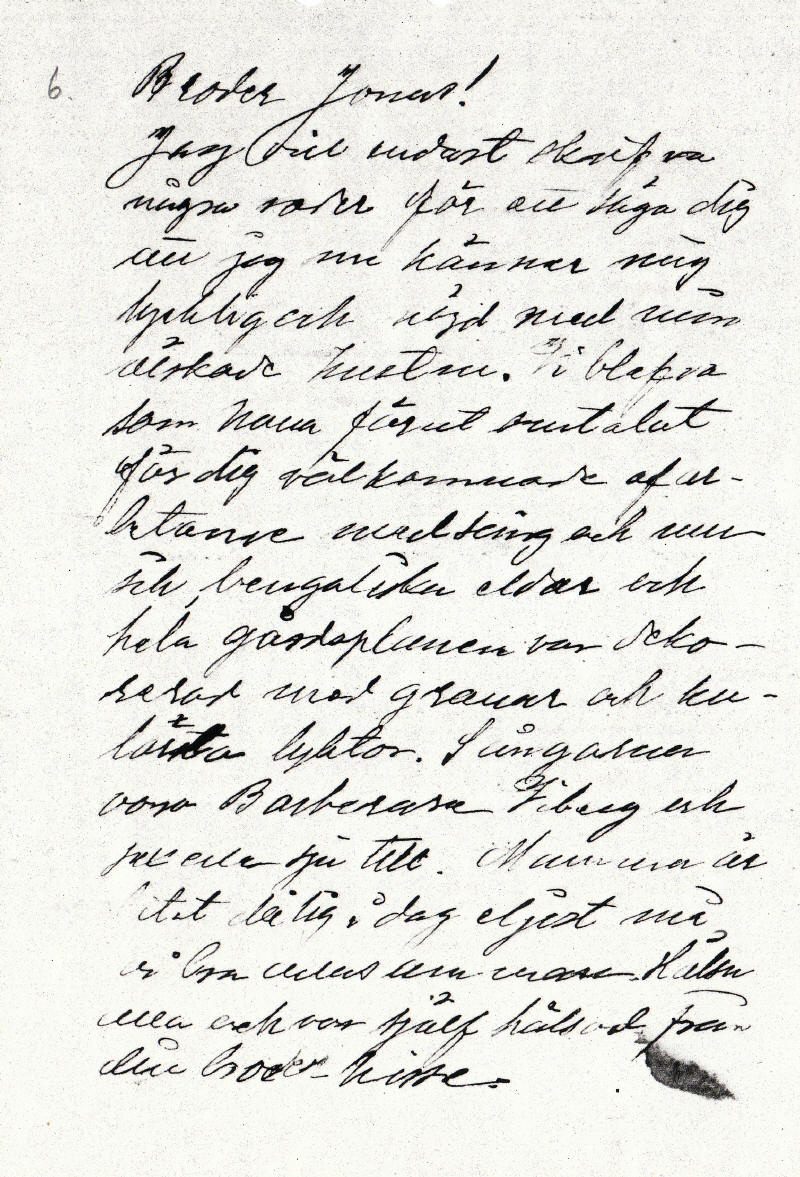 6.
Broder Jonas!
Jag vill endast skrifva
några rader för att säga dig
att jag nu känner mig
lycklig och nöjd med min
älskade hustru. Vi blefvo
som Nanna förut omtalat
för dig välkomnade af ar-
betarne med sång och mu-
sik, bengaliska eldar och
hela gårdsplanen var deko-
rerad med granar och ku-
lörta lyktor. Sångarna
voro Barberare Viberg och
sex eller sju till. Mamma är
litet dålig i dag eljest må
vi bra allesamman. Hälsa
alla och var själf hälsad från
din broder Nisse.